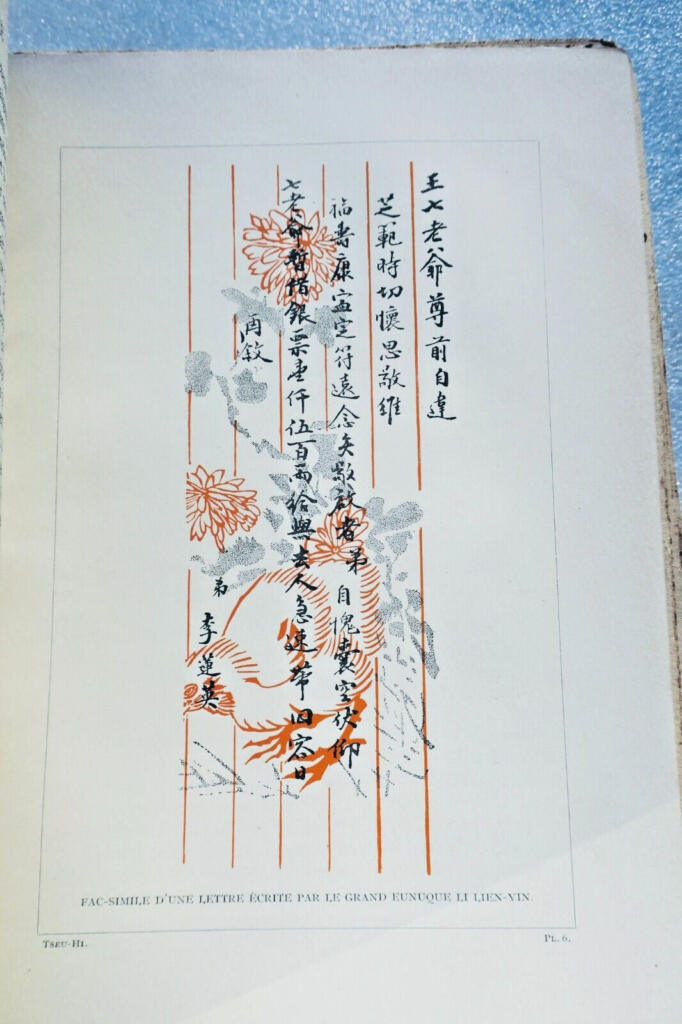 王七老爺尊前自違
芝範時切懷思敬維
福壽康寍定符遠念矣敬啟者弟自愧囊空伏仰
七老爺暫借銀票壹仟伍百兩給與去人急速帶回容日
再敘
弟 李蓮英
FAC-SIMILE D'UNE LETTRE ÉCRITE PAR LE GRAND EUNUQUE LI LIEN-YIN.
TSEU-HI.
PL. 6.